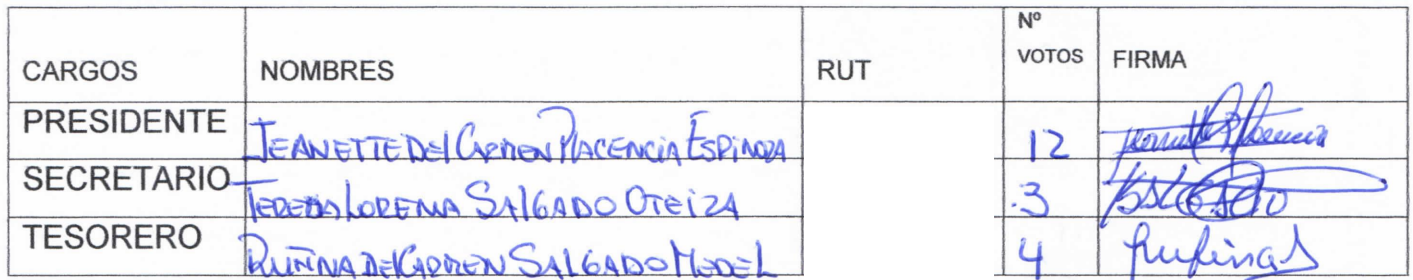 CARGOS NOMBRES RUT Nº VOTOS FIRMA
PRESIDENTE JEANETTE Del CARMEN PLACENCIA ESPINOZA 12
SECRETARIO TERESA LORENA SALGADO OTEIZA 3
TESORERO RUFINA DEL CARMEN SALGADO MEDEL 4 Rufina S